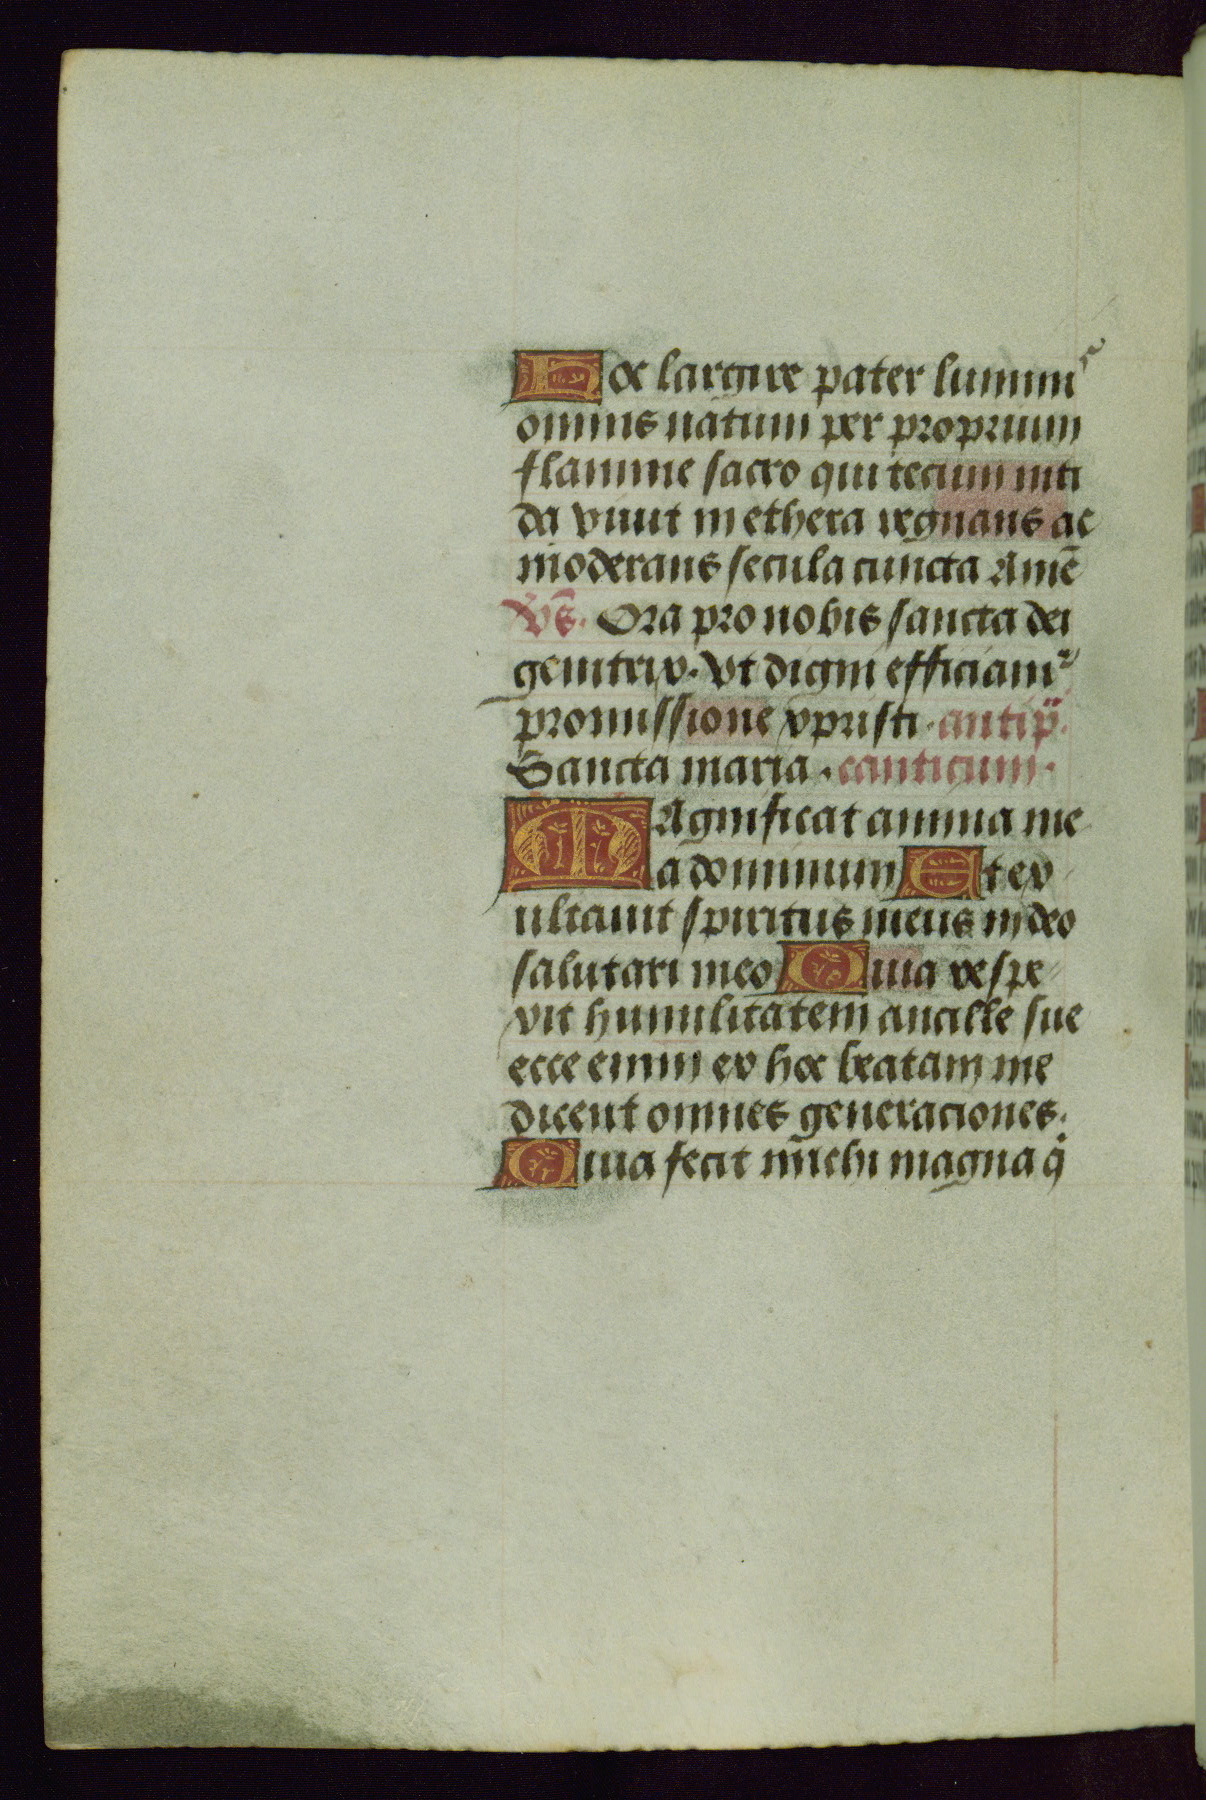 Hoc largire pater luminis
omnis natum per proprium
flamine sacro qui tecum niti
da viuit in ethera regnans ac
moderans secula cuncta Amē
Vs̄. Ora pro nobis sancta dei
genitrix. Vt digni efficiamꝰ
promissione xpristi. antip̄.
Sancta maria. canticum.
MAgnificat anima me
a dominum Et ex
ultauit spiritus meus in deo
salutari meo Quia respe
xit humilitatem ancille sue
ecce enim ex hoc beatam me
dicent omnes generaciones.
Quia fecit michi magna q̇